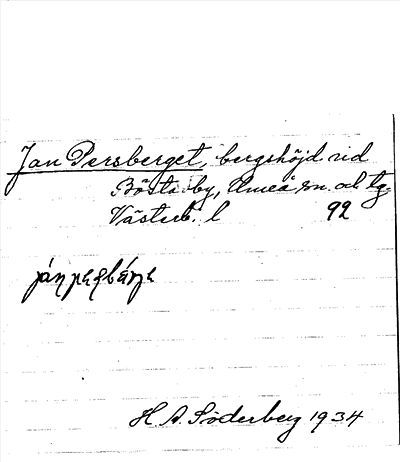 Jan Persberget, bergshöjd vid
Bösta by, Umeå sn. och tg.
Västerb. l 92
H A. Söderberg 1934